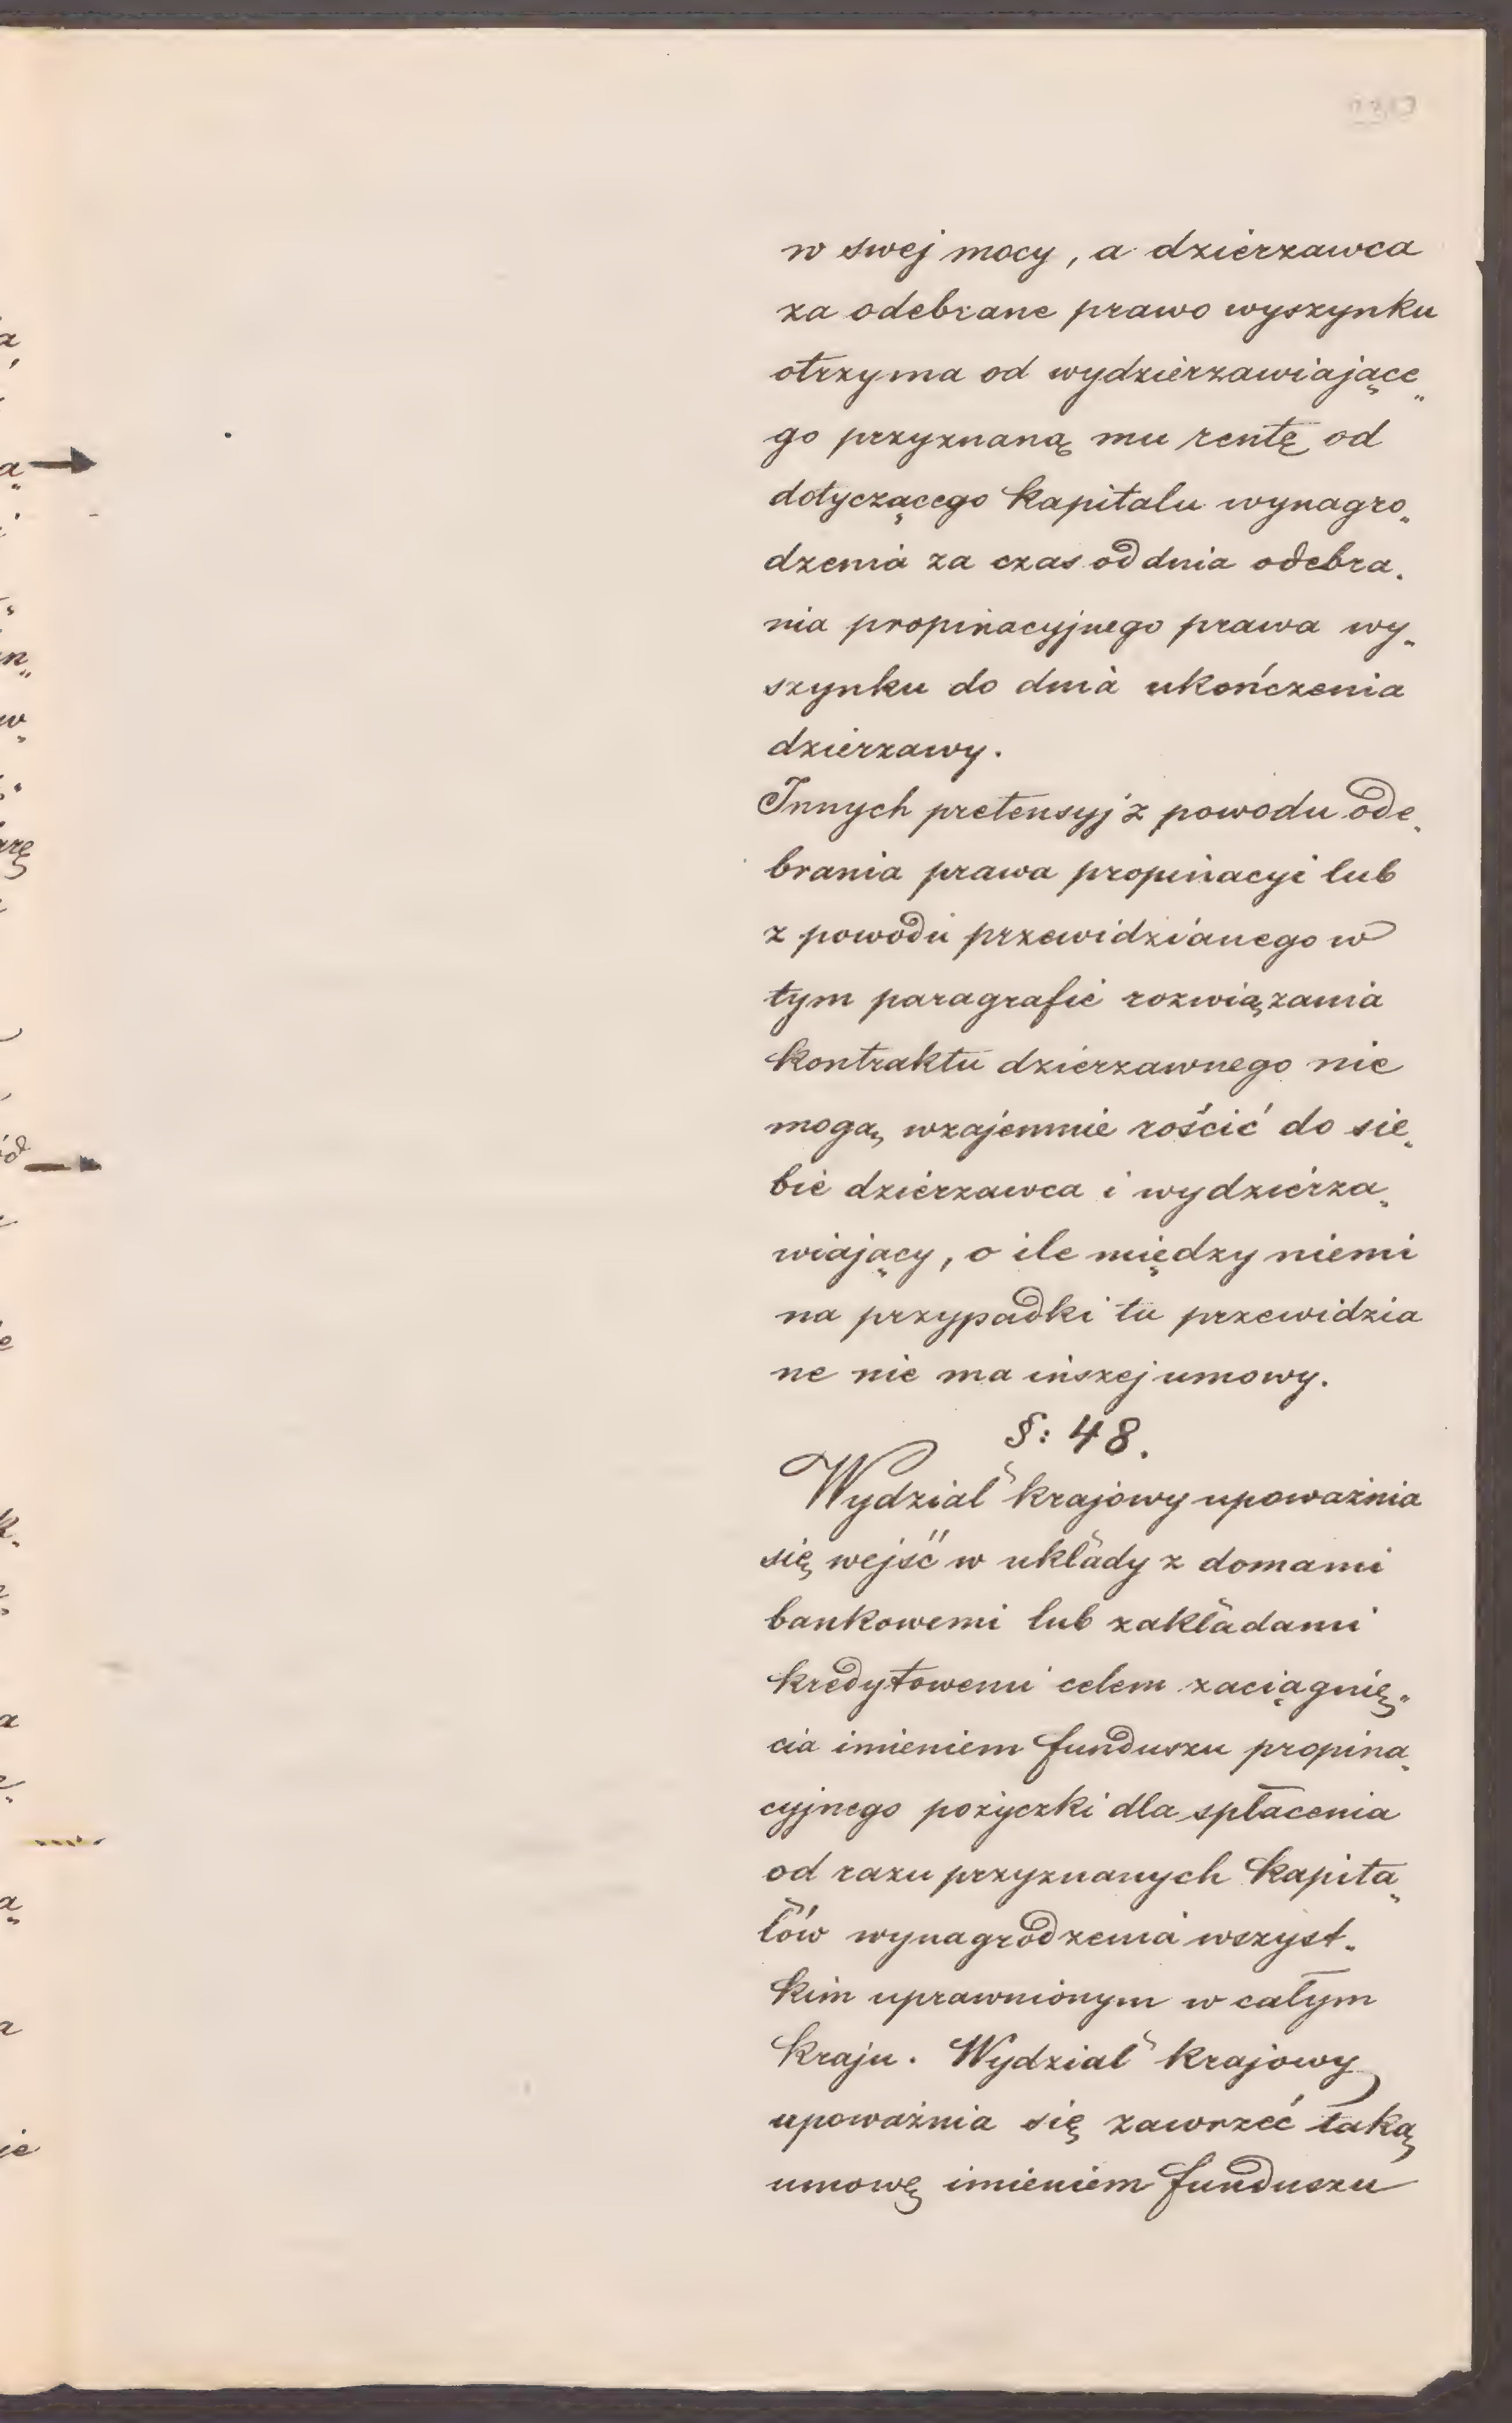 w swej mocy, a dzierzawca
za odebrane prawo wyszynku
otrzyma od wydzierzawiające„
go przyznaną mu rentę od
dotyczącego kapitalu wynagro„
dzenia za czas od dnia odebra„
nia propinacyjnego prawa wy„
szynku do dnia ukończenia
dzierzawy.
Innych pretensyj z powodu ode„
brania prawa propinacyi lub
z powodu przewidzianego w
tym paragrafie rozwiązania
kontraktu dzierzawnego nie
mogą wzajemnie rościć do sie„
bie dzierzawca i wydzierza„
wiający, o ile między niemi
na przypadki tu przewidzia
ne nie ma inszej umowy.
§: 48.
Wydział krajowy upoważnia
się wejść w układy z domami
bankowemi lub zakładami
kredytowemi celem zaciągnię„
cia imieniem funduszu propina„
cyjnego pożyczki dla spłacenia
od razu przyznanych kapita„
łów wynagrodzenia wszyst„
kim uprawnionym w całym
kraju. Wydział krajowy
upoważnia się zawrzeć taką
umowę imieniem funduszu